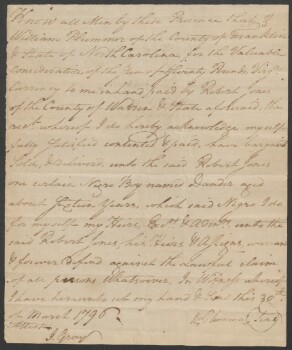 Know all Men by these Presents that I
William Brimmer of the County of Franklin
& State of North Carolina for the Valuable
Consideration of the sum of Seventy Pounds Virga.
Currency to me in hand paid by Robert Jones
of the County of Warren & State aforesaid, the
rect. whereof I do hereby acknowledge myself
fully satisfied contented & paid, have bargaind
Sold, & delivered, unto the said Robert Jones
one certain Negro Boy named aged
about Sixteen Years, which said Negro I do
for myself my Heirs, Exrs. & Admrs. unto the
said Robert Jones, his Heirs & Assigns, warrant
& forever Defend against the lawfull claim
of all persons Whatsoever. In Witness whereof
I have hereunto set my hand & Seal this 30th.
of March 1796
Attest
J. Gray